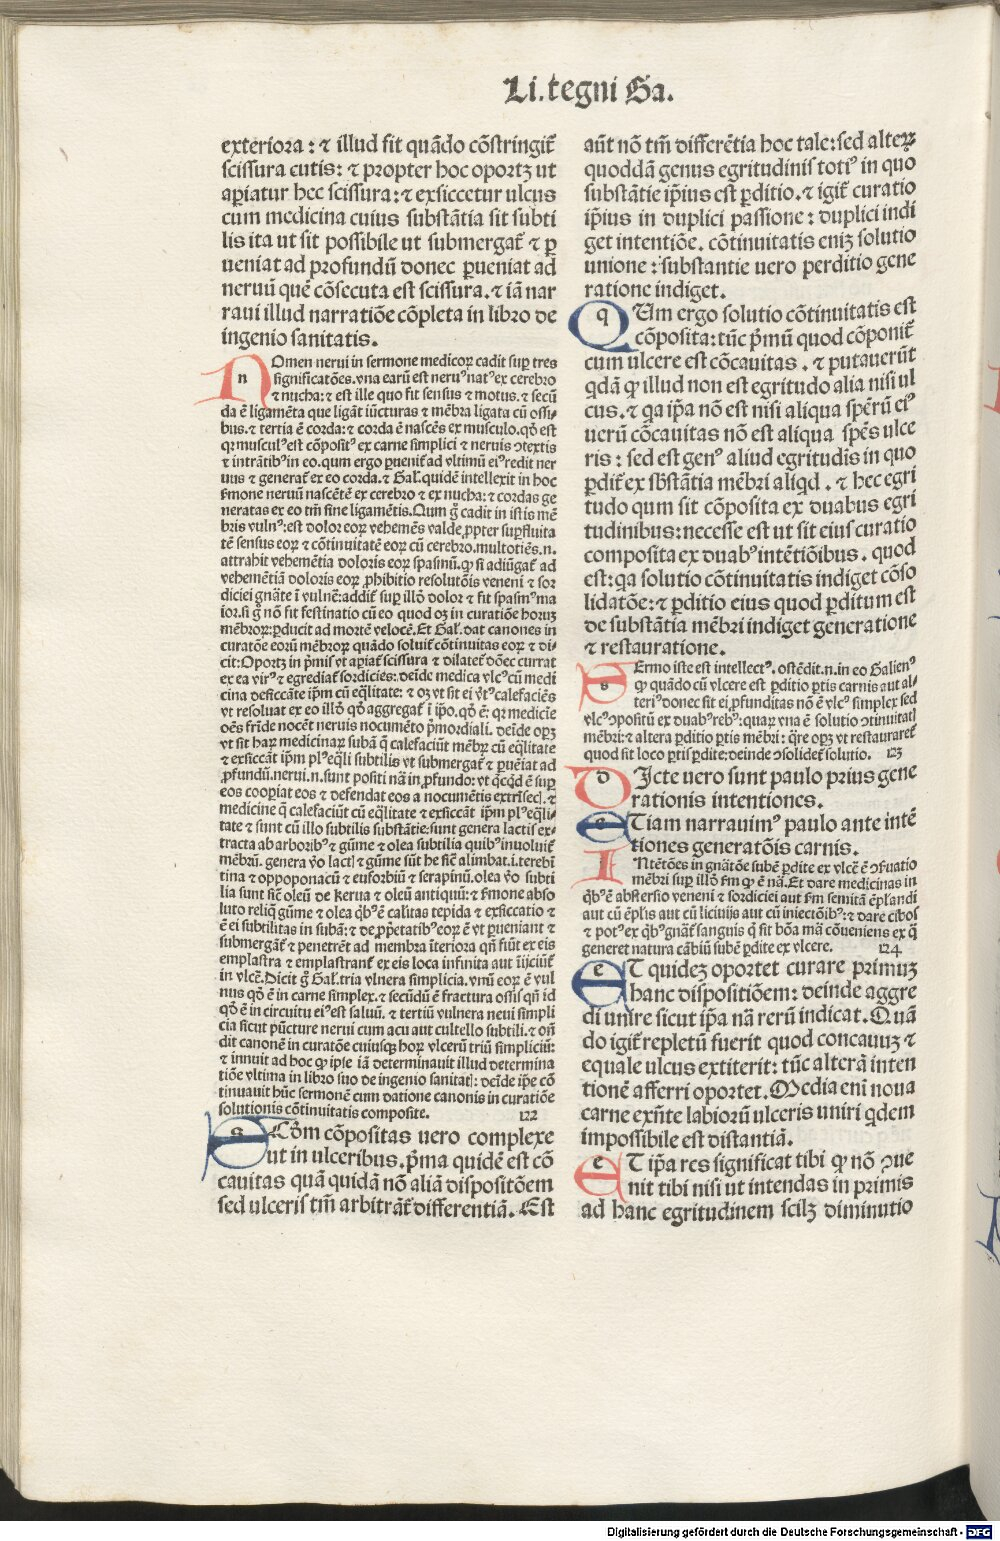 Li.tegni Ga.
exteriora: ⁊ illud fit quãdo cõstringit̃
scissura cutis: ⁊ propter hoc oportꝫ ut
aꝑiatur hec scissura: ⁊ exsiccetur ulcus
cum medicina cuius substãtia sit subti
lis ita ut sit possibile ut submergat̃ ⁊ ꝑ
ueniat ad profundũ donec ꝑueniat ad
neruũ quẽ cõsecuta est scissura. ⁊ iã nar
raui illud narratiõe cõpleta in libro de
ingenio sanitatis.
n Omen nerui in sermone medicoꝝ cadit suꝑ tres
significatões. vna earũ est neruꝰ natꝰ ex cerebro
⁊ nucha: ⁊ est ille quo fit sensus ⁊ motus. ⁊ secũ
da ẽ ligamẽta que ligãt iũcturas ⁊ mẽbra ligata cũ ossi
bus. ⁊ tertia ẽ corda: ⁊ corda ẽ nascẽs ex musculo. qđ est
qꝛ musculꝰ est cõpositꝰ ex carne simplici ⁊ neruis ꝯtextis
⁊ intrãtibꝰ in eo. qum ergo ꝑuenit̃ ad vltimũ eiꝰ redit ner
uus ⁊ generat̃ ex eo corda. ⁊ Gal. quidẽ intellexit in hoc
sermone neruũ nascẽtẽ ex cerebro ⁊ ex nucha: ⁊ cordas ge
neratas ex eo tm̃ sine ligamẽtis. Qum g̃ cadit in istis mẽ
bris vulnꝰ: est dolor eoꝝ vehemẽs valde ꝓpter suꝑfluita
tẽ sensus eoꝝ ⁊ cõtinuitatẽ eoꝝ cũ cerebro. multotiẽs .n.
attrahit vehemẽtia doloris eoꝝ spasmũ. ꝙ si adiũgat̃ ad
vehemẽtiã doloris eoꝝ ꝓhibitio resolutõis veneni ⁊ sor
diciei gnãte ĩ vulnẽ: addit̃ suꝑ illõ dolor ⁊ fit spasmꝰ ma
ior. si g̃ nõ fit festinatio cũ eo quod oꝫ in curatiõe horuꝫ
mẽbroꝝ: ꝑducit ad mortẽ velocẽ. Et Gal. dat canones in
curatõe eorũ mẽbroꝝ quãdo soluit̃ cõtinuitas eoꝝ ⁊ di-
cit: Oportꝫ in p̃mis vt aꝑiat̃ scissura ⁊ dilatet̃ dõec currat
ex ea virꝰ ⁊ egrediat̃ sordicies: deĩde medica vlcꝰ cũ medi
cina desiccãte ip̃m cũ eq̃litate: ⁊ oꝫ vt sit ei vt̃ꝰ calefaciẽs
vt resoluat ex eo illõ qđ aggregat̃ ĩ ip̃o. qđ ẽ: qꝛ medicĩe
oẽs fr̃ide nocẽt neruis nocumẽto p̃mordiali. deĩde opꝫ
vt sit haꝝ medicinaꝝ subã q̃ calefaciũt mẽbꝝ cũ eq̃litate
⁊ exsiccãt ip̃m plꝰ eq̃li subtilis vt submergat̃ ⁊ ꝑueiat ad
ꝓfundũ. nerui .n. sunt positi nã in ꝓfundo: vt q̃cq̃d ẽ suꝑ
eos cooꝑiat eos ⁊ defendat eos a nocumẽtis extrĩsecꝭ. ⁊
medicine q̃ calefaciũt cũ eq̃litate ⁊ exsiccãt ip̃m plꝰ eq̃li-
tate ⁊ sunt cũ illo subtilis substãtie: sunt genera lactis ex-
tracta ab arboribꝰ ⁊ gũme ⁊ olea subtilia quibꝰ inuoluit̃
mẽbrũ. genera v̾o lactꝭ ⁊ gũme sũt he sic̃ alimbat. i. terebĩ
tina ⁊ oppoponacũ ⁊ euforbiũ ⁊ serapinũ. olea v̾o subti
lia sunt sic̃ oleũ de kerua ⁊ oleũ antiquũ: ⁊ sermone abso
luto reliq̃ gũme ⁊ olea q̃bꝰ ẽ calitas tepida ⁊ exsiccatio ⁊
ẽ ei subtilitas in subã: ⁊ de ꝓp̃etatibꝰ eoꝝ ẽ vt ꝑueniant ⁊
submergãt̃ ⁊ penetrẽt ad membra ĩteriora qñ fiũt ex eis
emplastra ⁊ emplastrant̃ ex eis loca infinita aut ĩijciũt̃
in vlcẽ. Dicit g̃ Gal. tria vlnera simplicia. vnũ eoꝝ ẽ vul
nus qđ ẽ in carne simplex. ⁊ secũdũ ẽ fractura ossis qñ id
qđ ẽ in circuitu eiꝰ est saluũ. ⁊ tertiũ vulnera neui simpli
cia sicut pũcture nerui cum acu aut cultello subtili. ⁊ oñ
dit canonẽ in curatõe cuiusqꝫ hoꝝ vlcerũ triũ simpliciũ:
⁊ innuit ad hoc ꝙ ipse iã determinauit illud determina
tiõe vltima in libro suo de ingenio sanitatꝭ: deĩde ip̃e cõ
tinuauit hũc sermonẽ cum datione canonis in curatiõe
solutionis cõtinuitatis composite. 122
s Ecũdm cõpositas uero complexe
ut in ulceribus. p̃ma quidẽ est cõ
cauitas quã quidã nõ aliã dispositõem
sed ulceris tm̃ arbitrãt̃ differentiã. Est
aũt nõ tm̃ differẽtia hoc tale: sed alteꝝ
quoddã genus egritudinis totiꝰ in quo
substãtie ip̃ius est ꝑditio. ⁊ igit̃ curatio
ip̃ius in duplici passione: duplici indi
get intentiõe. cõtinuitatis eniꝫ solutio
unione: substantie uero perditio gene
ratione indiget.
q Um ergo solutio cõtinuitatis est
cõposita: tũc p̃mũ quod cõponit̃
cum ulcere est cõcauitas. ⁊ putauerũt
qđã ꝙ illud non est egritudo alia nisi ul
cus. ⁊ qa ip̃a nõ est nisi aliqua spẽrũ eiꝰ
uerũ cõcauitas nõ est aliqua spẽs ulce
ris: sed est genꝰ aliud egritudĩs in quo
ꝑdit̃ ex sbstãtia mẽbri aliqd. ⁊ hec egri
tudo qum sit cõposita ex duabus egri
tudinibus: necesse est ut sit eius curatio
composita ex duabꝰ intẽtiõibus. quod
est: qa solutio cõtinuitatis indiget cõso
lidatõe: ⁊ ꝑditio eius quod ꝑditum est
de substãtia mẽbri indiget generatione
⁊ restauratione.
s Ermo iste est intellectꝰ. ostẽdit .n. in eo Galienꝰ
ꝙ quãdo cũ vlcere est ꝑditio ꝑtis carnis aut al-
teriꝰ donec sit ei ꝓfunditas nõ ẽ vlcꝰ simplex sed
vlcꝰ ꝯpositũ ex duabꝰ rebꝰ: quaꝝ vna ẽ solutio ꝯtinuitatꝭ
mẽbri: ⁊ altera ꝑditio ꝑtis mẽbri: q̃re opꝫ vt restauraret̃
quod sit loco ꝑtis ꝑdite: deinde ꝯsolidet̃ solutio. 123
d Icte uero sunt paulo prius gene
rationis intentiones.
e Tiam narrauimꝰ paulo ante intẽ
tiones generatõis carnis.
I Ntẽtões in gnãtõe subẽ ꝑdite ex vlcẽ ẽ ꝯseruatio
mẽbri suꝑ illõ sm̃ ꝙ ẽ nã. Et dare medicinas in
q̃bꝰ ẽ abstersio veneni ⁊ sordiciei aut sm̃ semitã ẽplãndi
aut cũ ẽplis aut cũ liciuijs aut cũ iniectõibꝰ: ⁊ dare cibos
⁊ potꝰ ex q̃bꝰ gnãt̃ sanguis q̃ sit bõa mã cõueniens ex q̃
generet natura cãbiũ subẽ ꝑdite ex vlcere. 124
e T quideꝫ oportet curare primuꝫ
hanc dispositiõem: deinde aggre
di unire sicut ip̃a nã rerũ indicat. Quã
do igit̃ repletũ fuerit quod concauuꝫ ⁊
equale ulcus extiterit: tũc alterã inten
tionẽ afferri oportet. Media enĩ noua
carne exñte labiorũ ulceris uniri qdem
impossibile est distantiã.
e T ip̃a res significat tibi ꝙ nõ ꝯue
nit tibi nisi ut intendas in primis
ad hanc egritudinem scilꝫ diminutio
Digitalisierung gefördert durch die Deutsche Forschungsgemeinschaft - DFG